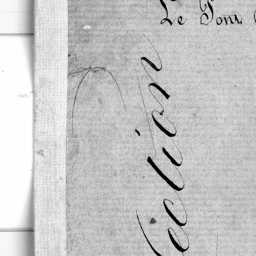 Le Pont
ection